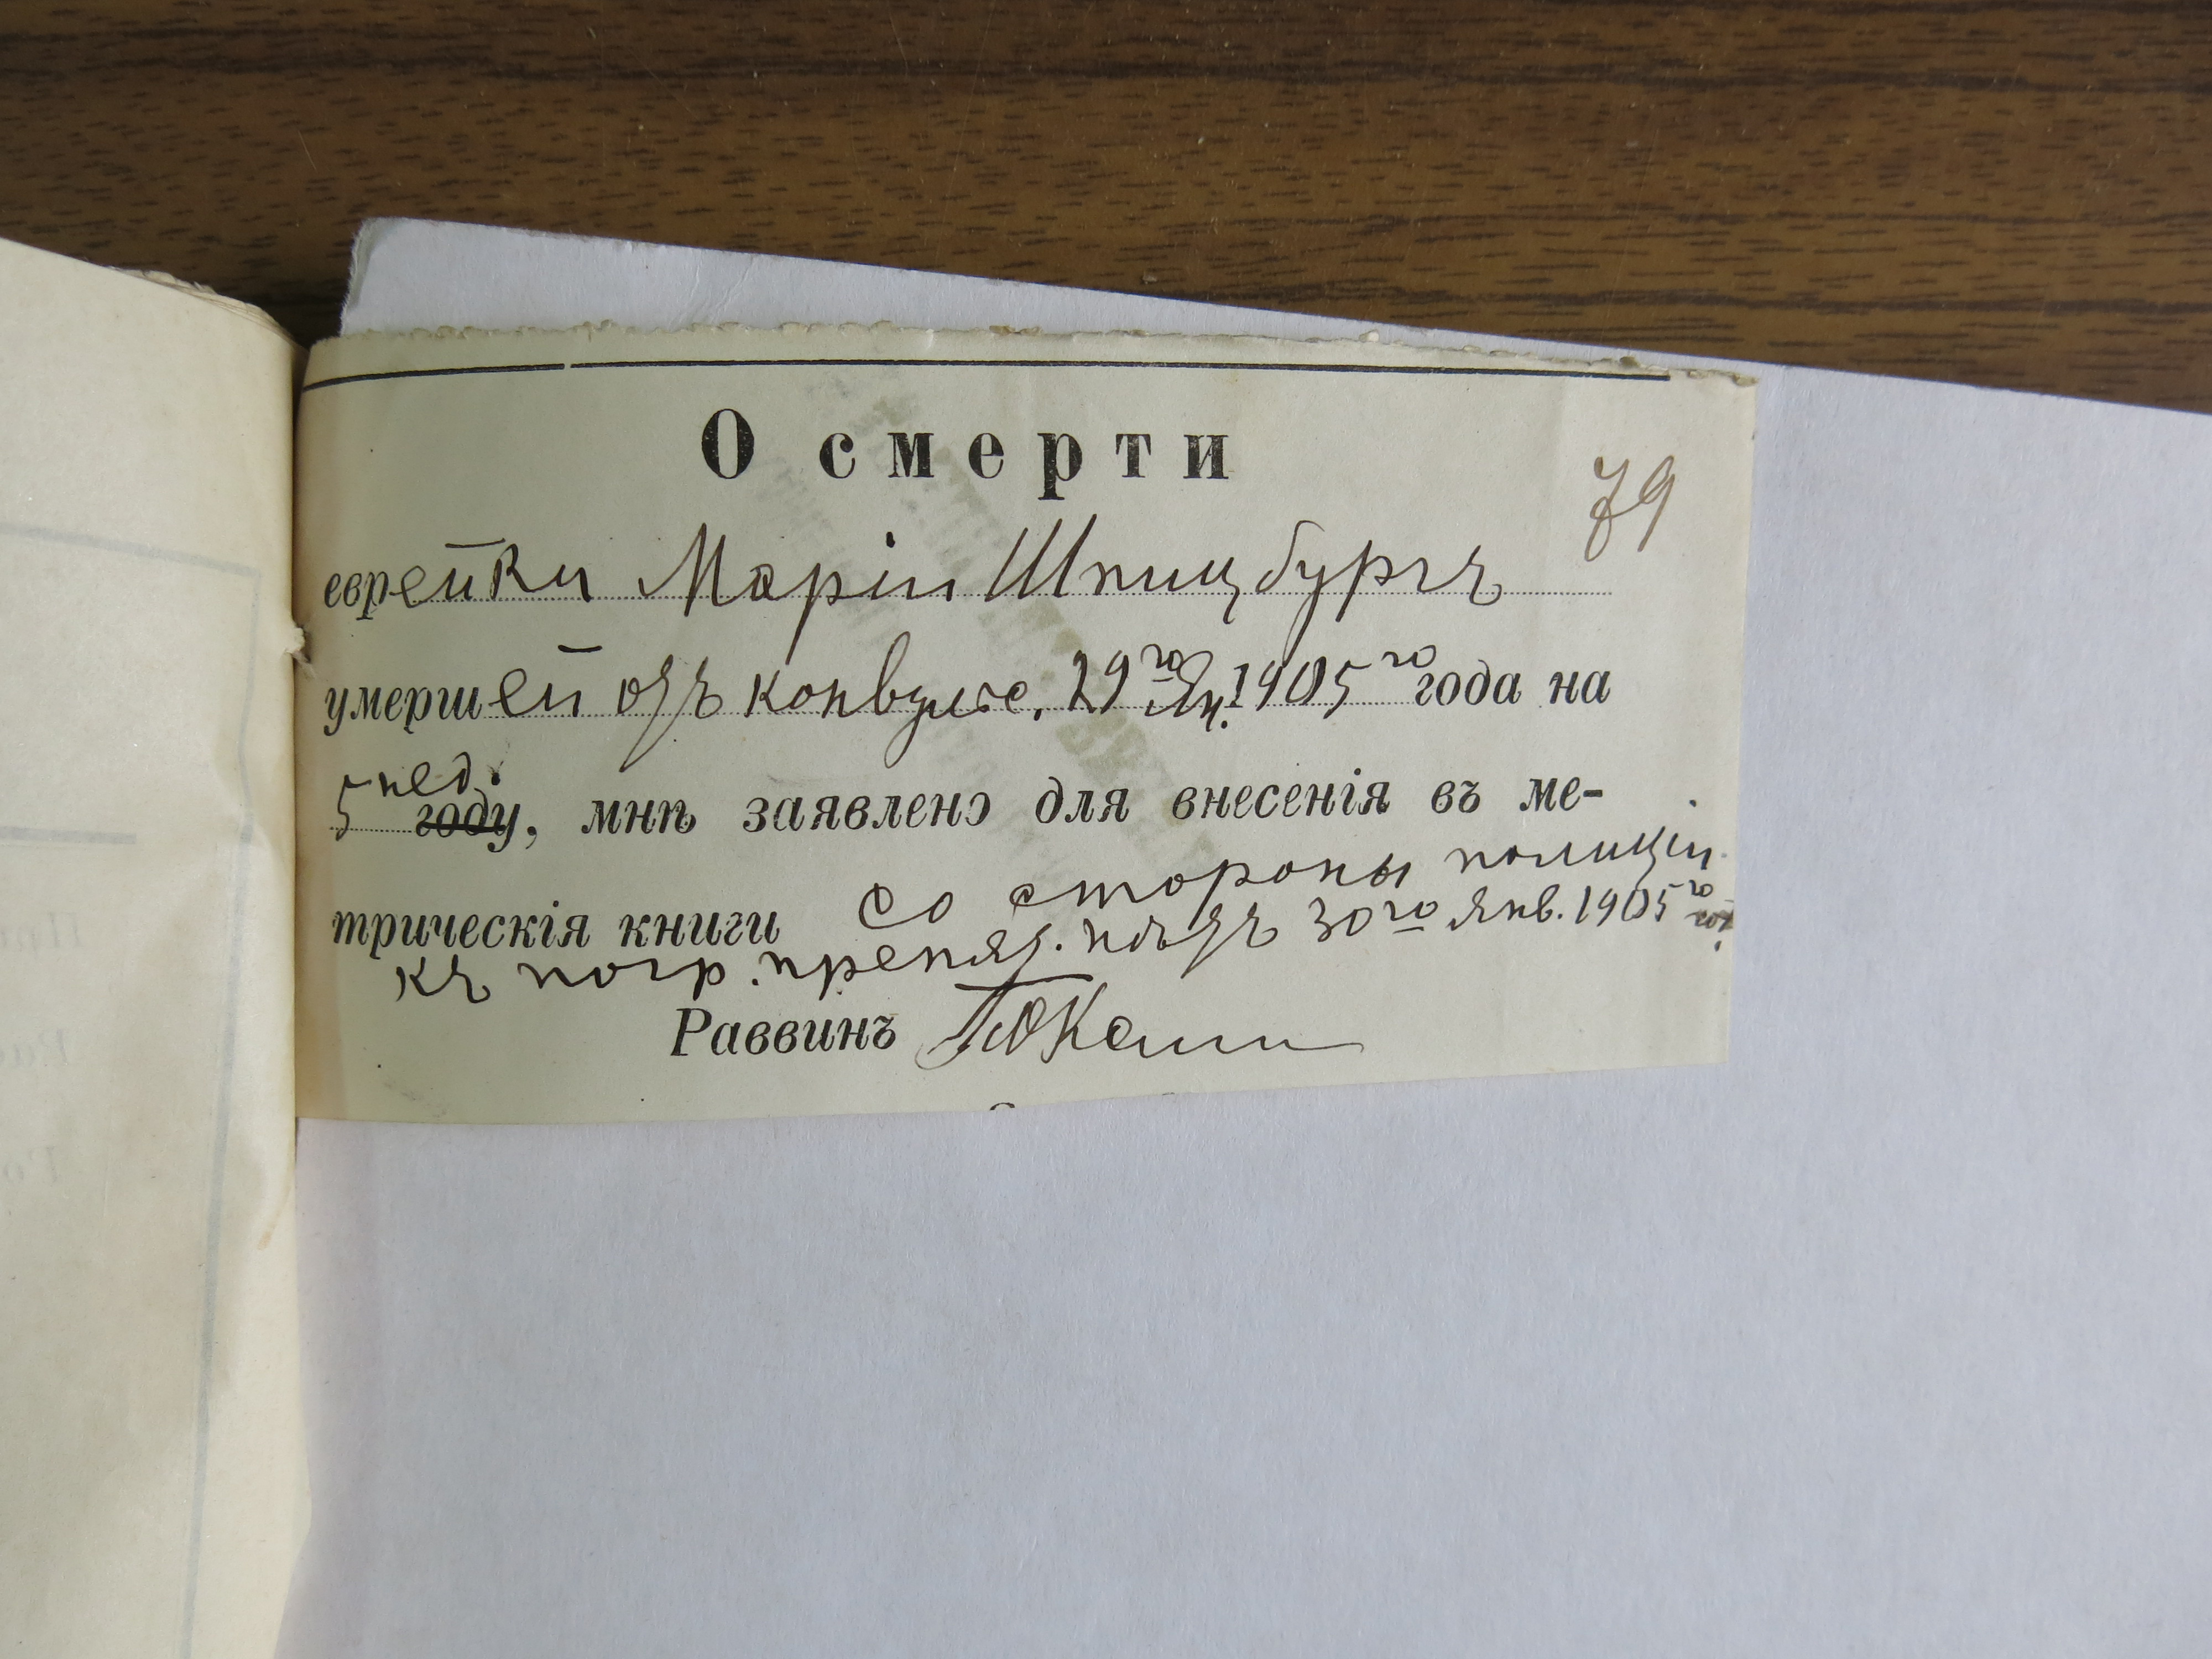 О смерти
79
еврейки Маріи Шпицбургъ
умершей отъ конвульс. 29го Ян. 1905го года на
5 нед.
году, мнѣ заявлено для внесенія въ ме-
трическія книги со стороны полиціи
къ погр. препят. нѣтъ 30го Янв. 1905го
Раввинъ